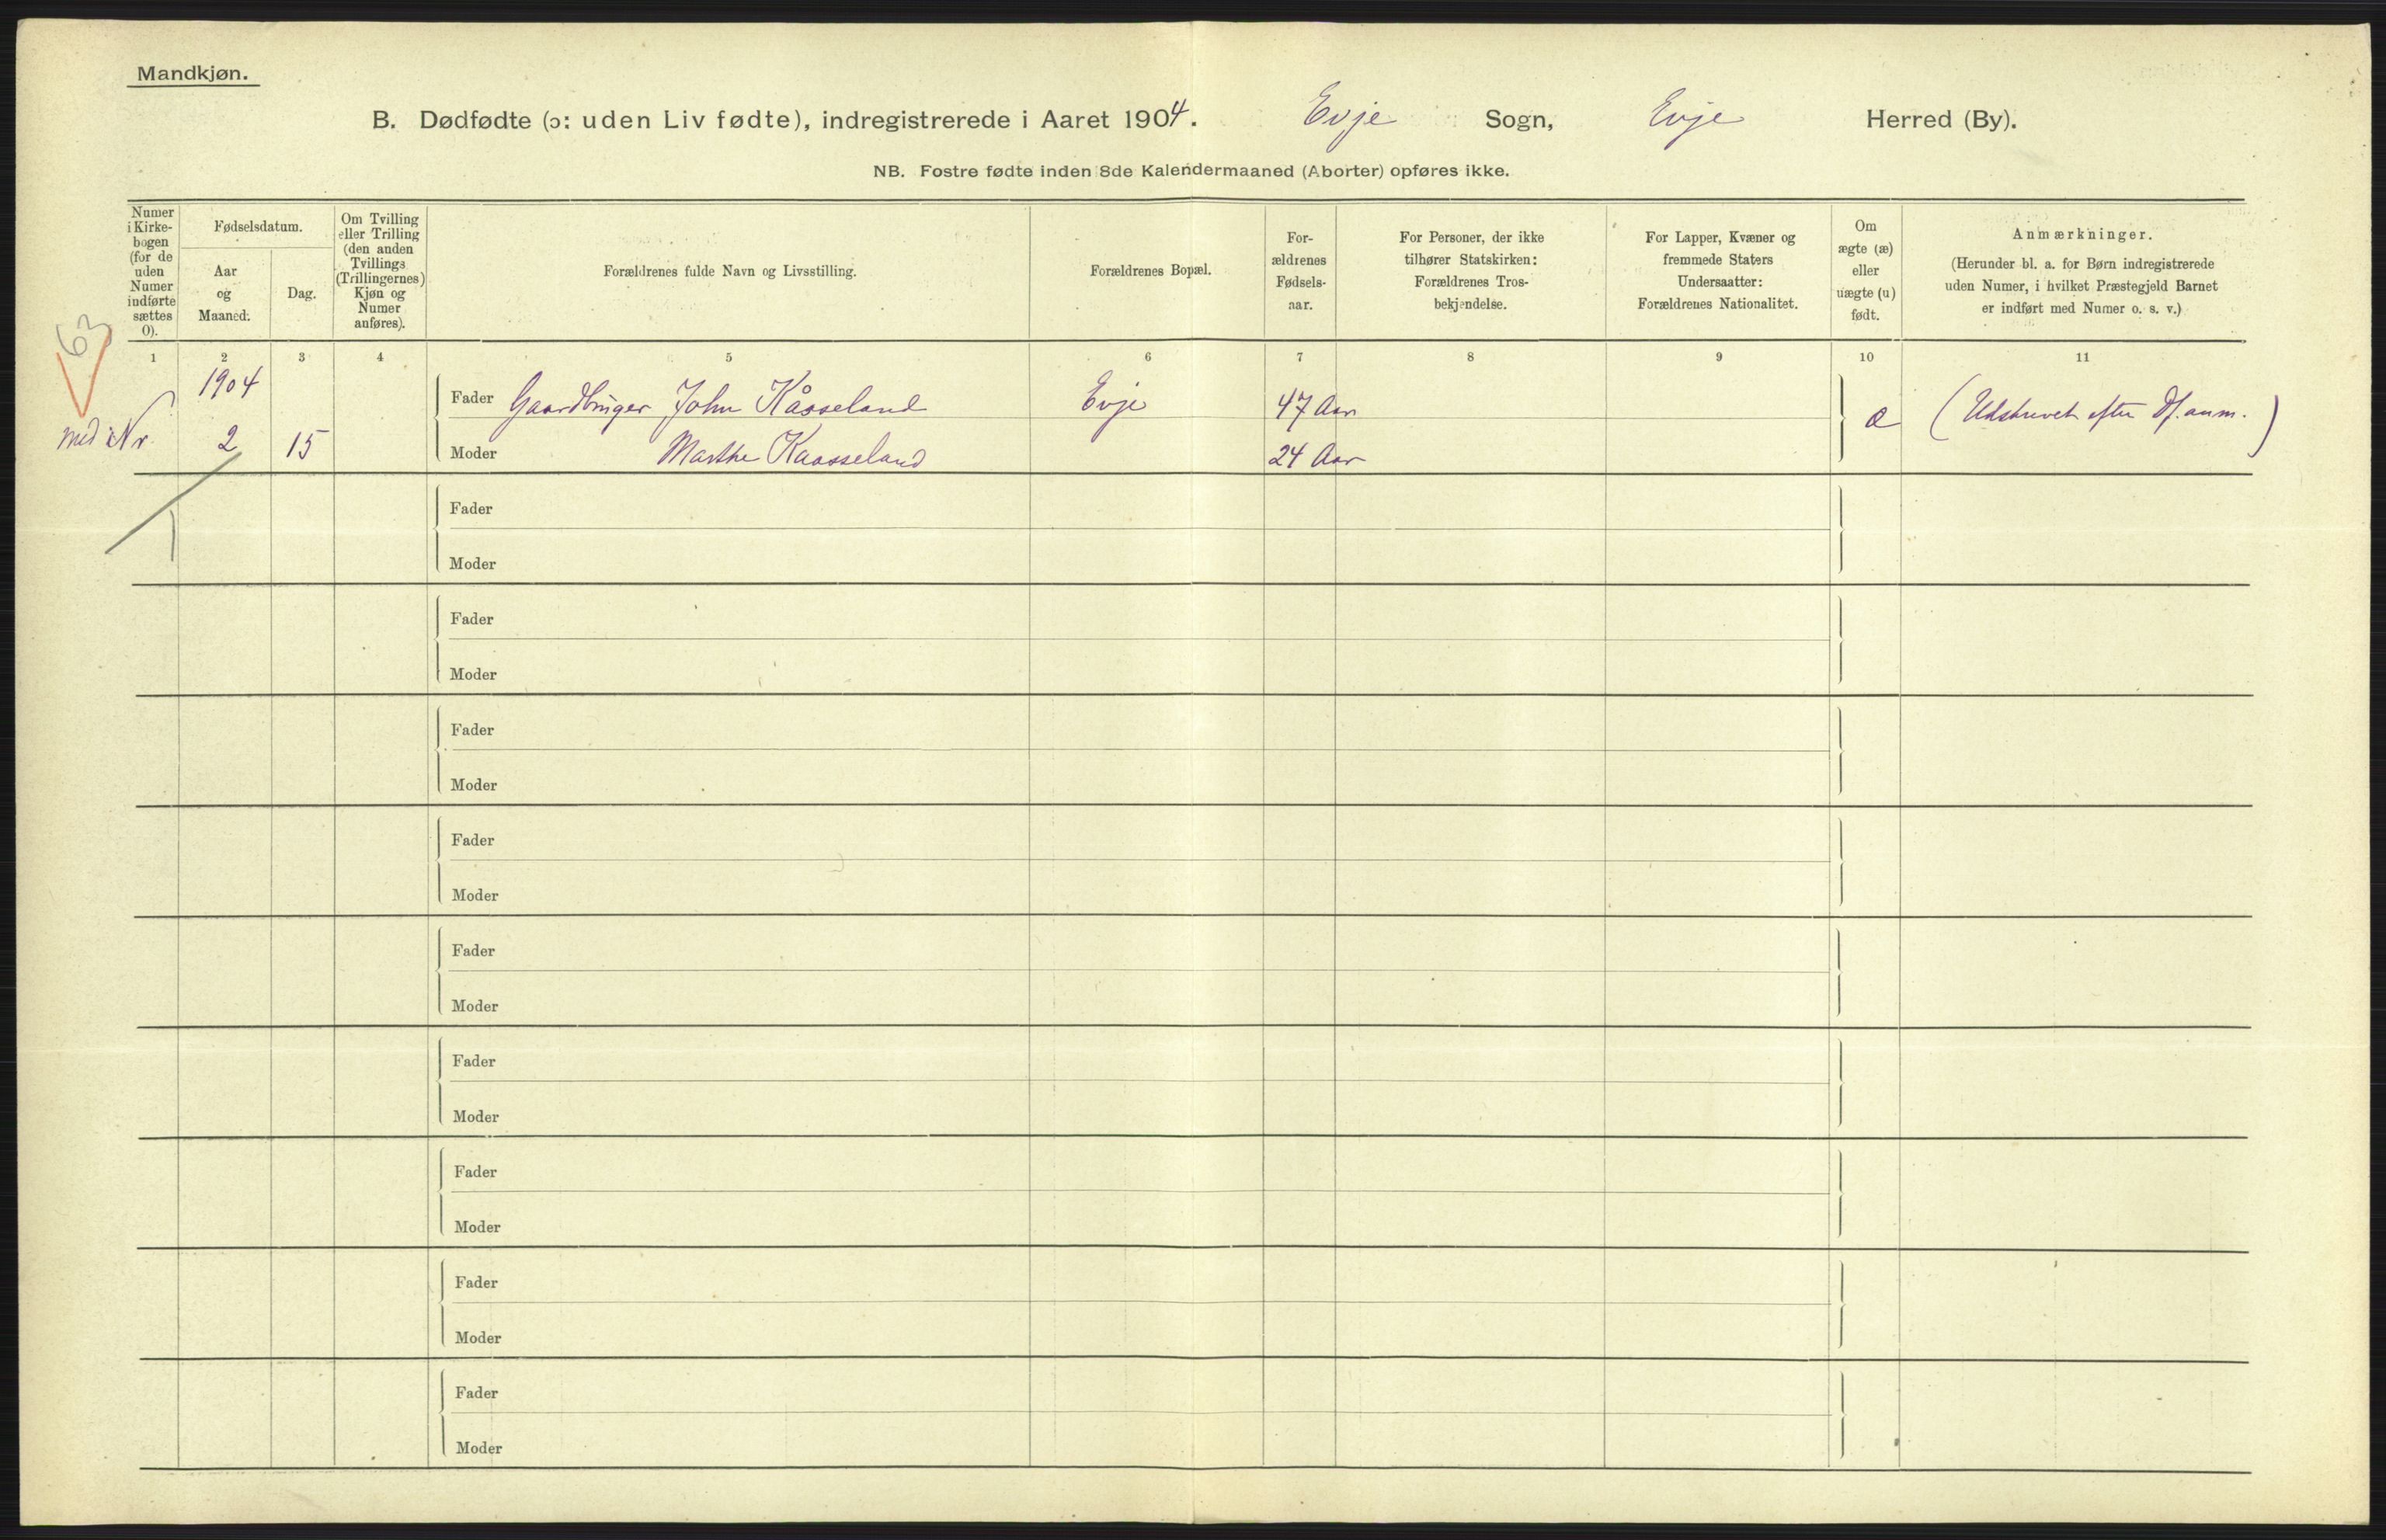 Mandkjøn.
B. Dødfødte (ɔ: uden Liv fødte), indregistrerede i Aaret 1904. Evje Sogn, Evje Herred (By).
NB. Fostre fødte inden 8de Kalendermaaned (Aborter) opføres ikke.
Numer
i Kirke-
bogen
(for de
uden
Numer
indførte
sættes
0).
Fødselsdatum.
Aar
og
Maaned.
Dag.
Om Tvilling
eller Trilling
(den anden
Tvillings
(Trillingernes)
Kjøn og
Numer
anføres).
Forældrenes fulde Navn og Livsstilling.
Forældrenes Bopæl.
For-
ældrenes
Fødsels-
aar.
For Personer, der ikke
tilhører Statskirken:
Forældrenes Tros-
bekjendelse.
For Lapper, Kvæner og
fremmede Staters
Undersaatter:
Forældrenes Nationalitet.
Om
ægte (æ)
eller
uægte (u)
født.
Anmærkninger.
(Herunder bl. a. for Børn indregistrerede
uden Numer, i hvilket Præstegjeld Barnet
er indført med Numer o. s. v.)
63
1 2 3 4 5 6 7 8 9 10 11
1904
Fader Gaardbruger John Kåsseland Evje 47 Aar
æ (Udskrevet efter Df. anm.)
Nr 2 15
Moder Marthe Kaasseland 24 Aar
Fader
Moder
Fader
Moder
Fader
Moder
Fader
Moder
Fader
Moder
Fader
Moder
Fader
Moder
Fader
Moder
Fader
Moder